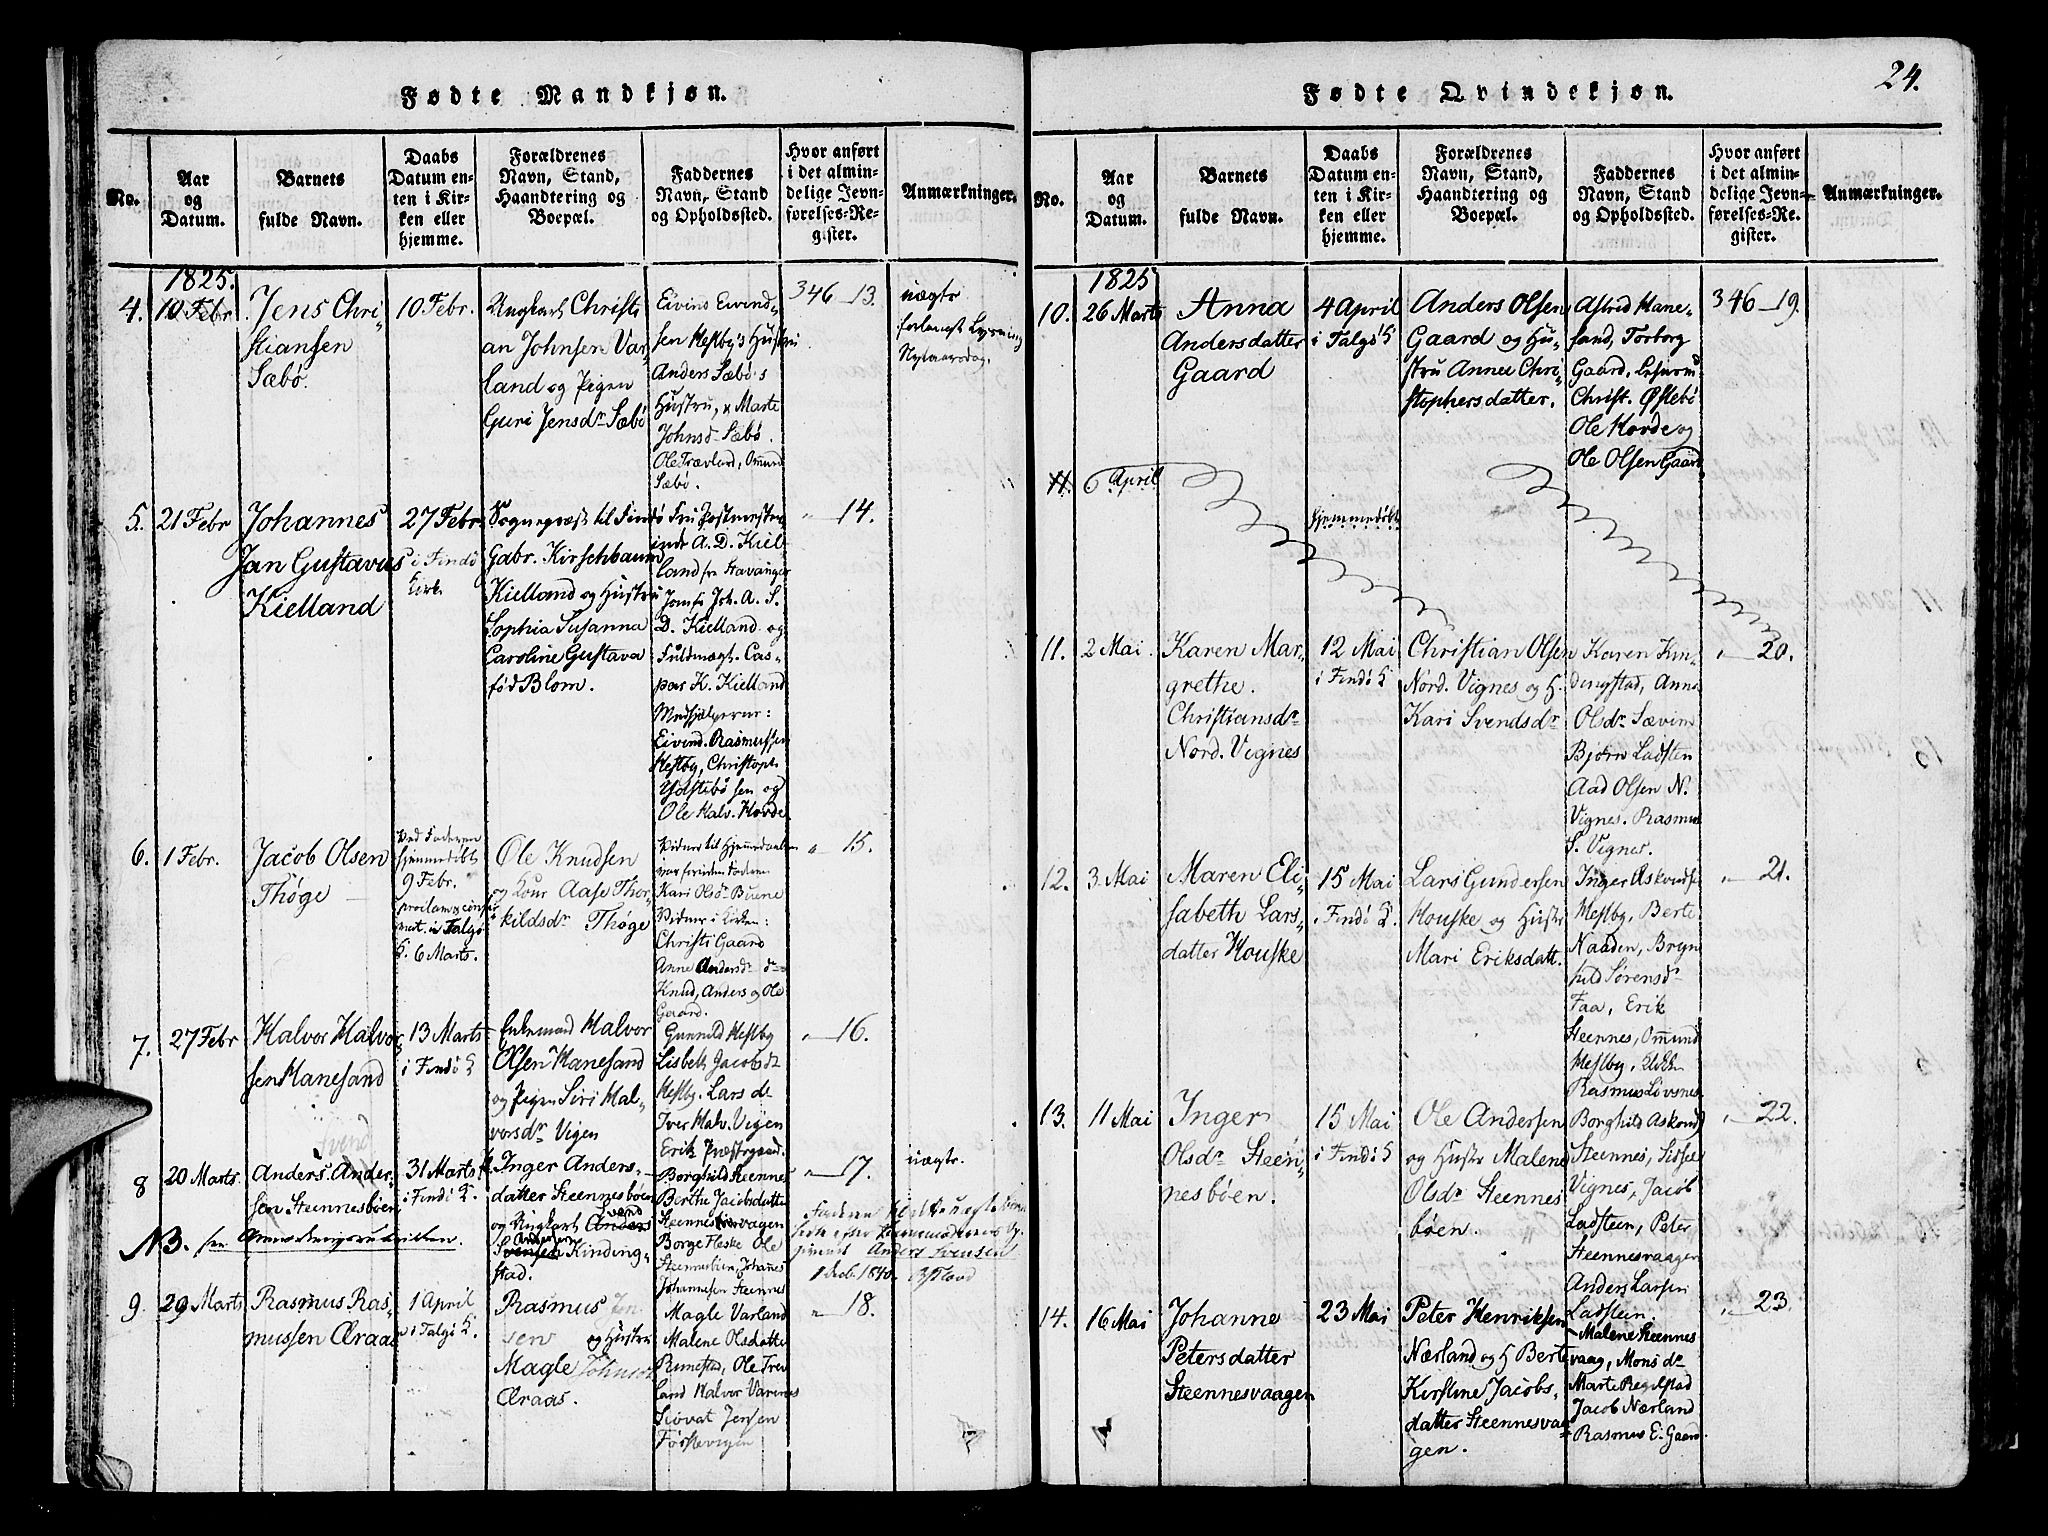 Fødte Mandkjøn.
No.
Aar
og
Datum.
Barnets
fulde Navn.
Daabs
Datum en-
ten i Kir-
ken eller
hjemme.
Forældrenes
Navn, Stand,
Haandtering og
Boepæl.
Faddernes
Navn, Stand
og Opholdssted.
Hvor anført
i det almin-
delige Jevn-
førelses-Re-
gister.
Anmærkninger.
1825.
4.
10 Febr
Jens Chri-
stiansen
Sæbø.
10 Febr.
Ungkarl Christi
an Johnsen Var-
land og Pigen
Guri Jensdr Sæbø
Eivins Eivind-
sen Hestby's Hustru
Anders Sæbø's
Hustru, Marte
Johnsd. Sæbø.
Ole Trævland, Omund
Sæbø.
346-13.
uægte
5.
21 Febr
Johannes
Jan Gustavus
Kielland
27 Febr.
i Findö
Kirk
Sognepræst til Findö
Gabr. Kirschbaum
Kielland og Hustru
Sophia Susanna
Caroline Gustava
född Blom.
Fru Postmester
inde A. D. Kiel-
land fra Stavanger
Jomfr Joh. A. S.
D. Kielland og
Fuldmægt. Cas-
par K. Kielland
Medhjælperne:
Eivind Rasmussen
Hestby, Christoph
Ydstebø sen og
Ole Halv. Horde
" 14.
6.
1 Febr.
Jacob Olsen
Thøge
Ved Faderen
hjemmedöbt
9 Febr.
i Talgö
K. 6 Marts.
Ole Knudsen
og Kone Aase Thor-
kildsdr Thøge
Kari Olsdr Buene
Vidner i Kirken:
Christi Gaard
Anne Andersdr do
Knud, Anders og Ole
Gaard.
" 15.
7.
27 Febr
Halvor Halvor
sen Hanesand
13 Marts
i Findö K
Enkemand Halvor
Olsen Hanesand
og Pigen Siri Hal-
vorsdr Vigen
Gunnild Hestby
Lisbeth Jacobsdr
Hestby. Lars do
Iver Halv. Vigen
Erik Præstegaard.
" 16.
8
20 Marts.
Anders Ander-
sen Steennesbøen
31 Marts
i Findö K.
Inger Anders-
datter Steennesbøen
og Ungkarl Anders
Svend
Svensen Kinding-
stad.
Borghild Steennes
Berthe Jacobsdatter
Steennesvaagen
Borge Fleske Ole
Steennesbøen, Johannes
Johannesen Steennes
" 17.
uægte.
Anders Svensen
NB.
9.
29 Marts
Rasmus Ras-
mussen Æraas
1 April
i Talgö K.
Rasmus Jen-
sen og Hustru
Magle Johnsdr
Æraas.
Magle Varland
Malene Olsdatter
Rimestad, Ole Træv
land Halvor Varenes
Siovat Jensen
Förstevigen
" 18.
Fødte Qvindekjøn.
24.
No.
Aar
og
Datum.
Barnets
fulde Navn.
Daabs
Datum en-
ten i Kir-
ken eller
hjemme.
Forældrenes
Navn, Stand,
Haandtering og
Boepæl.
Faddernes
Navn, Stand
og Opholdssted.
Hvor anført
i det almin-
delige Jevn-
førelses-Re-
gister.
Anmærkninger.
1825
10.
26 Marts
Anna
Andersdatter
Gaard
4 April
i Talgö K
Anders Olsen
Gaard og Hu-
stru Anna Chri-
stophersdatter.
Astrid Hane-
sand, Torborg
Gaard,
Christ. Østebö
Ole Horde og
Ole Olsen Gaard
346-19.
11.
6 April
hjemmedöbt
11.
2 Mai.
Karen Mar-
grethe.
Christiansdr
Nord. Vignes
12 Mai
i Findö K
Christian Olsen
Nord. Vignes og H.
Kari Svendsdr
Karen Kin-
dingstad, Anna
Olsdr Sævim
Bjørn Ladsten
Aad Olsen N.
Vignes. Rasmus
S. Vignes.
" 20.
12.
3 Mai
Maren Eli-
sabeth Lars-
datter Houske
15 Mai
i Findö K.
Lars Gundersen
Houske og Hustr
Mari Eriksdatt.
Inger Askvudsd
Hestby, Berte
Naaden, Bryn
hild Sörensdr
Faa, Erik
Steennes, Omund
Hestby,
Rasmus Livsnes
" 21.
13.
11 Mai
Inger
Olsdr Steen-
nesbøen.
15 Mai
i Findö K
Ole Andersen
og Hustr Malene
Olsdr Steennes
bøen.
Borghild Askvudsd
Steennes, Lidsee
Vignes, Jacob
Ladsteen, Peter
Steennesvaagen
Anders Larsen
Ladsteen.
" 22.
14.
16 Mai
Johanne
Petersdatter
Steennesvaagen
23 Mai
Peter Henriksen
Nærland og H Berte
Kirstine Jacobs-
datter Steennesvaa-
gen.
Malene Steennes
vaag, Mons do
Marte Regilstad
Jacob Nærland
Rasmus E. Gaard.
" 23.